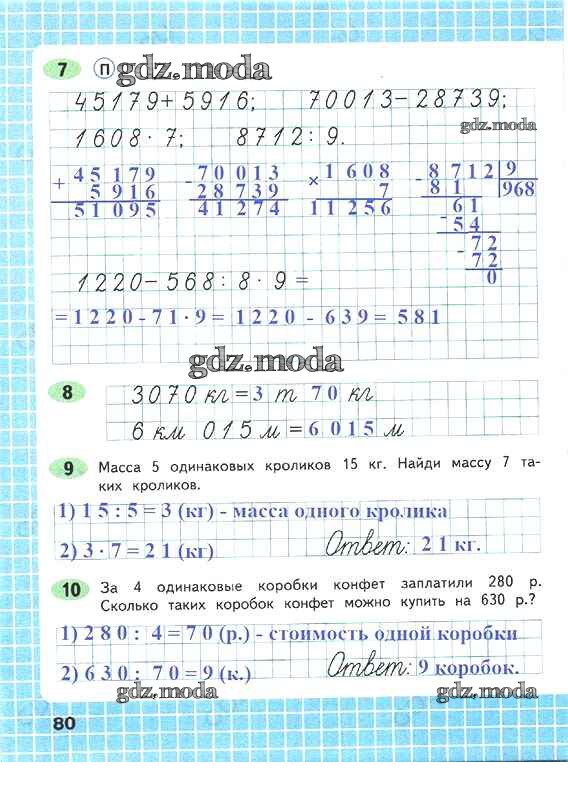 7 П gdz.moda
45179+5916; 70013−28739;
gdz.moda
1608·7; 8712:9.
+ 45179 - 70013 × 1608 - 8712 9
5916 28739 7 81 968
51095 41274 11256 - 61
54
- 72
72
0
1220−568:8·9 =
=1220-71·9=1220 - 639=581
gdz.moda
8 3070 кг=3 т 70 кг
6 км 015 м =6015 м
9 Масса 5 одинаковых кроликов 15 кг. Найди массу 7 та-
ких кроликов.
1) 15:5=3 (кг) - масса одного кролика
2) 3·7=21 (кг) Ответ: 21 кг.
10 За 4 одинаковые коробки конфет заплатили 280 р.
Сколько таких коробок конфет можно купить на 630 р.?
1) 280: 4=70 (р.) - стоимость одной коробки
2) 630: 70=9 (к.) Ответ: 9 коробок.
gdz.moda gdz.moda
80